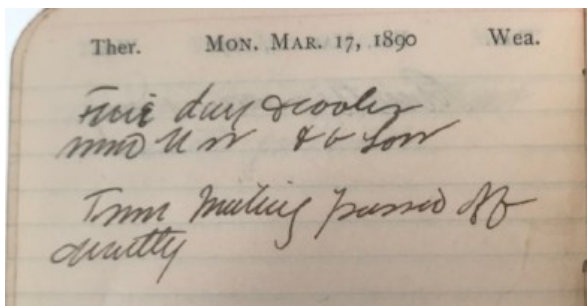 Ther. MON. MAR. 17, 1890 Wea.
Fine day & cooler
wind N W & a low
Town Meeting passed off
quietly